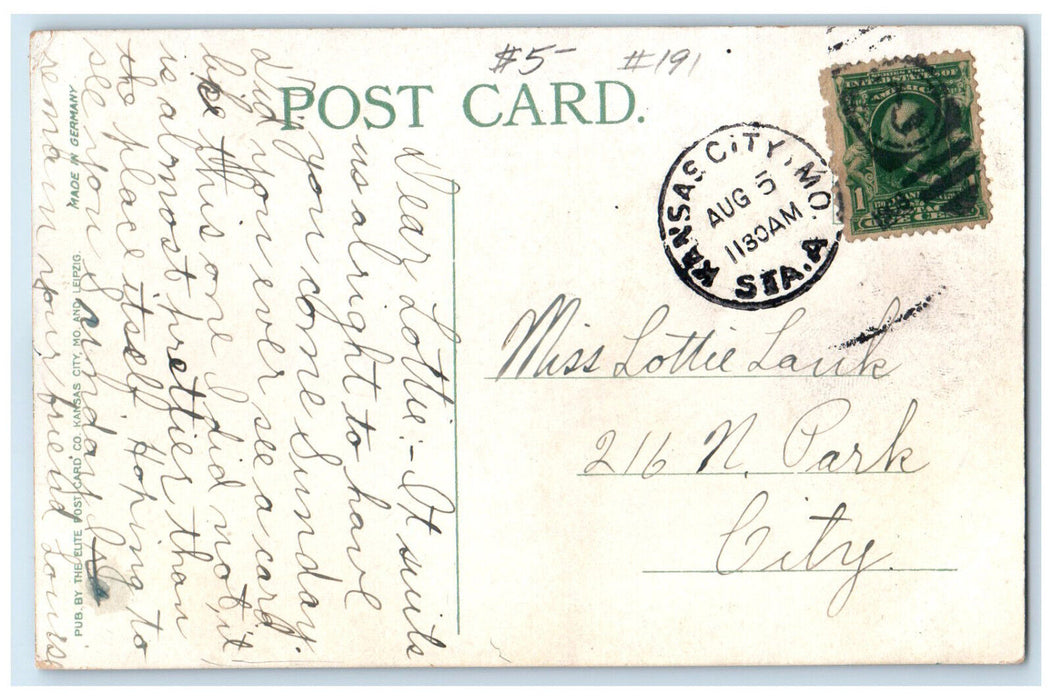 #5 #191
POST CARD.
KANSAS CITY, MO.
AUG 5
1130AM
STA. A
SERIES 1902
UNITED STATES OF
AMERICA
1 1
ONE CENT
Miss Lottie Lauk
216 N. Park
City.
Dear Lottie:- It suits
us alright to have
you come Sunday.
Did you ever see a card
like this one I did not, it
is almost prettier than
the place itself Hoping to
see you Sunday I
remain your friend Louise
MADE IN GERMANY
PUB. BY THE ELITE POST CARD CO. KANSAS CITY, MO. AND LEIPZIG.